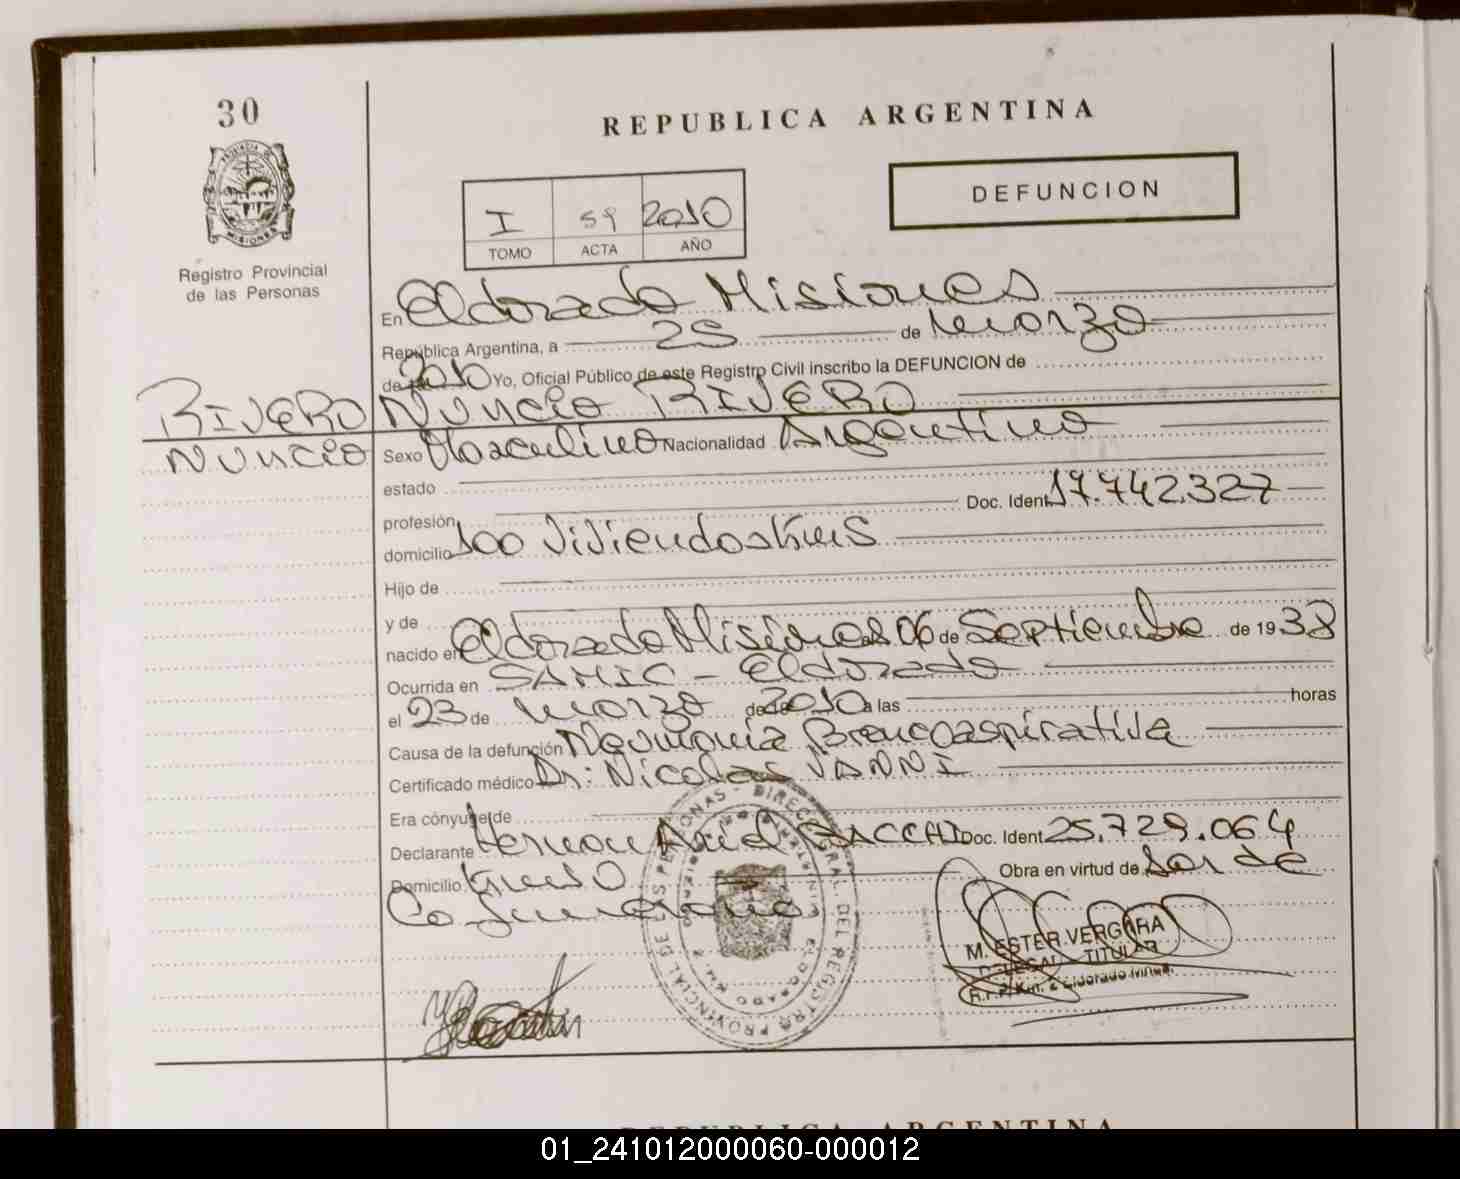 30
REPUBLICA ARGENTINA
DEFUNCION
I 59 2010
TOMO ACTA AÑO
Registro Provincial
de las Personas
En Eldorado Misiones
República Argentina, a 25 de Marzo
de 2010 Yo, Oficial Público de este Registro Civil inscribo la DEFUNCION de
RIVERO Nuncio RIVERO
Nuncio Sexo Masculino Nacionalidad Argentino
estado
profesión Doc. Ident. 17.742.327
domicilio 100 Viviendas Km 5
Hijo de
y de
nacido en Eldorado Misiones 06 de Septiembre de 1938
Ocurrida en SAMIC - Eldorado
el 23 de Marzo de 2010 a las horas
Causa de la defunción Neumonia Broncoaspirativa
Certificado médico Dr: Nicolas VANNI
Era cónyuge de
Declarante Hernan Ariel Doc. Ident. 25.729.064
Domicilio Km 10 Obra en virtud de ser de
Co funeraria
M. ESTER VERGARA
DELEGADA TITULAR
R.P.P. Km. 2 Eldorado Mnes.
REPUBLICA ARGENTINA
01_241012000060-000012